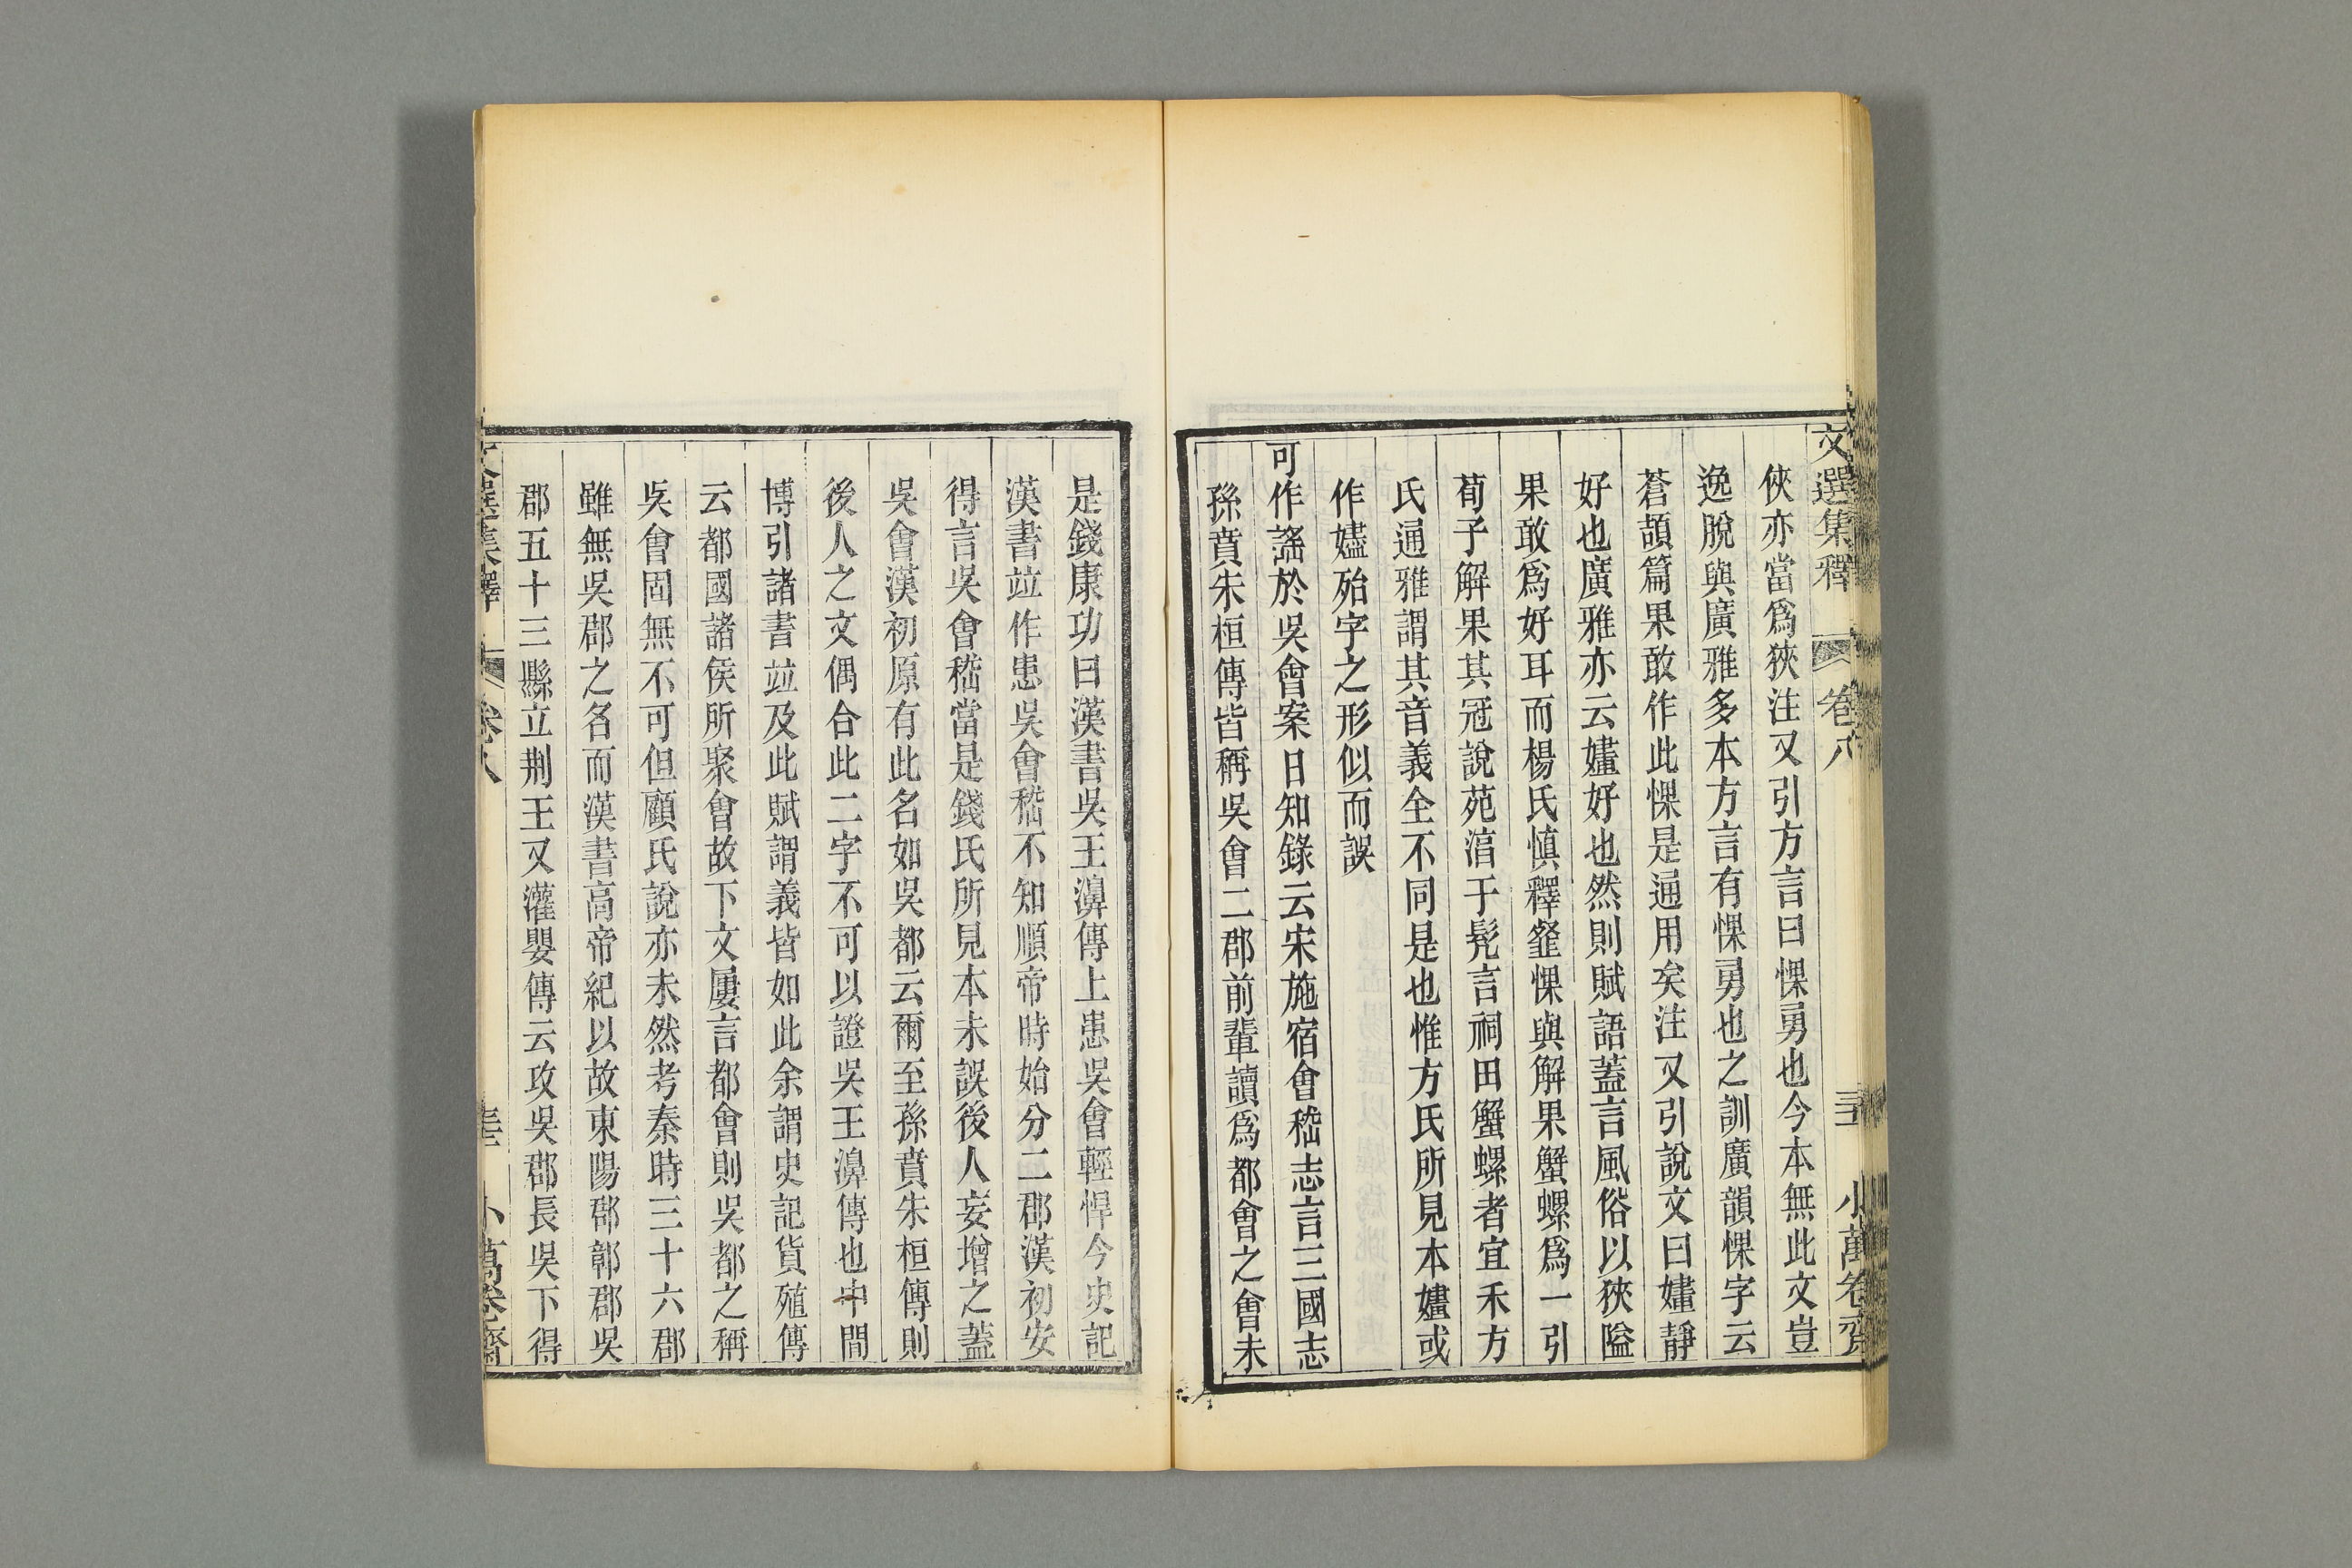 文選集釋 卷八 小萬卷齋
俠亦當爲狹注又引方言曰惈勇也今本無此文豈
逸脫與廣雅多本方言有惈勇也之訓廣韻惈字云
蒼頡篇果敢作此惈是通用矣注又引說文曰㜅靜
好也廣雅亦云㜅好也然則賦語蓋言風俗以狹隘
果敢爲好耳而楊氏愼釋䪥惈與解果蟹螺爲一引
荀子解果其冠說苑淳于髡言祠田蟹螺者宜禾方
氏通雅謂其音義全不同是也惟方氏所見本㜅或
作嬧殆字之形似而誤
可作謡於吳會案日知錄云宋施宿會稽志言三國志
孫賁朱桓傳皆稱吳會二郡前輩讀爲都會之會未
是錢康功曰漢書吳王濞傳上患吳會輕悍今史記
漢書竝作患吳會稽不知順帝時始分二郡漢初安
得言吳會稽當是錢氏所見本未誤後人妄增之蓋
吳會漢初原有此名如吳都云爾至孫賁朱桓傳則
後人之文偶合此二字不可以證吳王濞傳也中間
博引諸書竝及此賦謂義皆如此余謂史記貨殖傳
云都國諸侯所聚會故下文屢言都會則吳都之稱
吳會固無不可但顧氏說亦未然考秦時三十六郡
雖無吳郡之名而漢書高帝紀以故東陽郡鄣郡吳
郡五十三縣立荆王又灌嬰傳云攻吳郡長吳下得
文選集釋 卷八 小萬卷齋